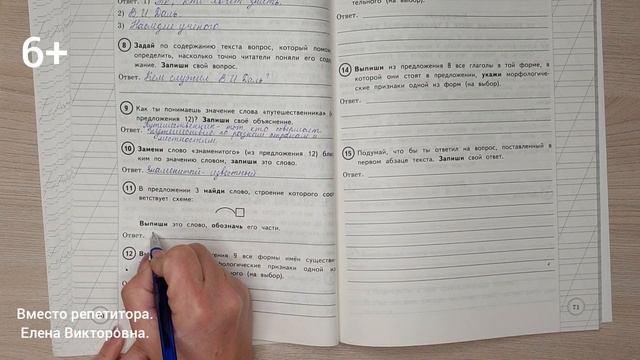 Ответ. 1) Те, кто хочет знать.
2) В.И.Даль
3) Наследие ученого
8 Задай по содержанию текста вопрос, который помо
определить, насколько точно читатели поняли его сод
жание. Запиши свой вопрос.
Ответ. Кем служил В.И.Даль?
9 Как ты понимаешь значение слова «путешественника» (
предложения 12)? Запиши своё объяснение.
Ответ. Путешественник - тот, кто совершает
путешествие по разным странам и
местностям.
10 Замени слово «знаменитого» (из предложения 12) бли
ким по значению словом, запиши это слово.
Ответ. Знаменитый - известный
11 В предложении 3 найди слово, строение которого соот
ветствует схеме:
Выпиши это слово, обозначь его части.
Ответ.
12 В ения 9 все формы имён существи
рфологические признаки одной из
ного (на выбор).
тельного (на выбор).
Ответ.
14 Выпиши из предложения 8 все глаголы в той форме, в
которой они стоят в предложении, укажи морфологиче-
ские признаки одной из форм (на выбор).
Ответ.
15 Подумай, что бы ты ответил на вопрос, поставленный в
первом абзаце текста. Запиши свой ответ.
Ответ.
71
6+
Вместо репетитора.
Елена Викторовна.